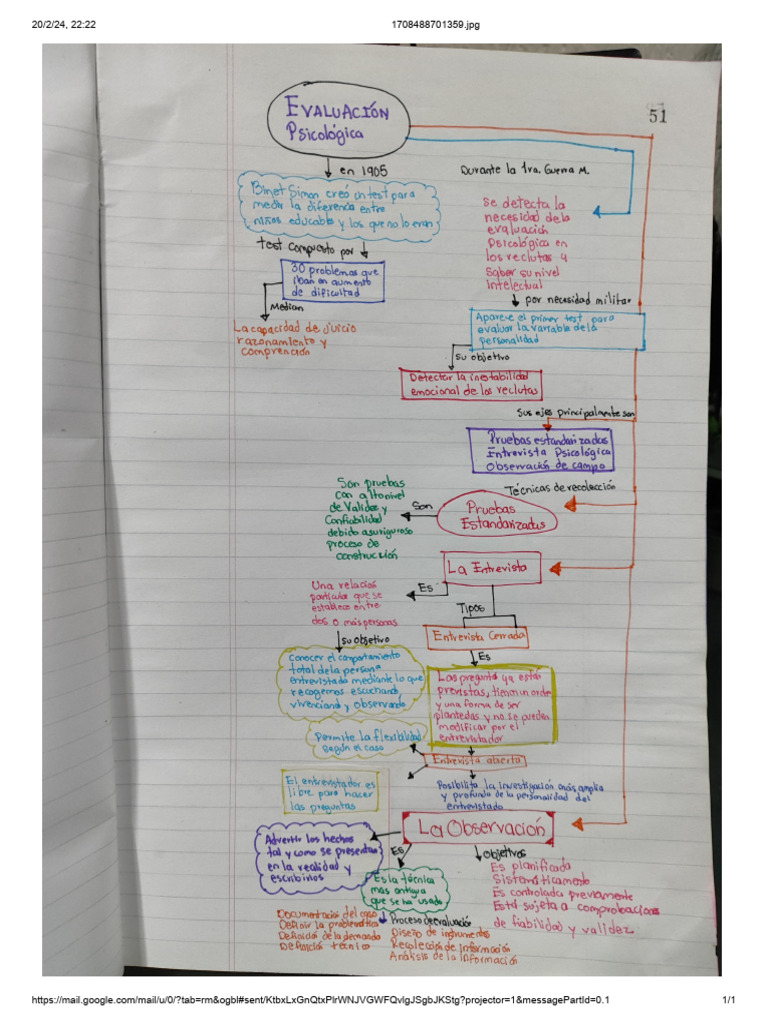 20/2/24, 22:22
1708488701359.jpg
51
EVALUACIÓN
Psicológica
en 1905
Binet Simon creó un test para
medir la diferencia entre
niños educable y los que no lo eran
test compuesto por
30 problemas que
iban en aumento
de dificultad
Median
La capacidad de juicio
razonamiento y
comprención
Durante la 1ra. Guerra M.
Se detecta la
necesidad de la
evaluación
Psicológica en
los reclutas y
Saber su nivel
Intelectual
por necesidad militar
Aparece el primer test para
evaluar la variable de la
personalidad
su objetivo
Detectar la inestabilidad
emocional de los reclutas
Sus ejes principalmente son
Pruebas estandarizadas
Entrevista Psicológica
Observación de campo
Técnicas de recolección
Pruebas
Estandarizadas
Son
Son pruebas
con alto nivel
de Validez y
Confiabilidad
debido a su riguroso
proceso de
construcción
La Entrevista
Es
Una relación
particular que se
establece entre
dos o mas personas
su objetivo
Conocer el comportamiento
total de la persona
entrevistada mediante lo que
recogemos escuchand
vivenciand y observando
Tipos
Entrevista Cerrada
Es
Las pregunta ya están
previstas, tienen un orden
y una forma de ser
planteadas y no se pueden
modificar por el
entrevistador
Entrevista abierta
Permite la flexibilidad
según el caso
El entrevistador es
libre para hacer
las preguntas
Posibilita la investigación más amplia
y profunda de la personalidad del
entrevistado
La Observación
Advertir los hechos
tal y como se presentan
en la realidad y
escribirlos
Es
Es la técnica
mas antigua
que se ha usado
Objetivos
Es planificada
Sistemáticamente
Es controlada previamente
Está sujeta a comprobaciones
de fiabilidad y validez
Proceso de evaluación
Documentación del caso
Definir la problemática
Definición de la demanda
Definición técnica
Diseño de instrumento
Recolección de Información
Análisis de la Información
https://mail.google.com/mail/u/0/?tab=rm&ogbl#sent/KtbxLxGnQtxPlrWNJVGWFQvlgJSgbJKStg?projector=1&messagePartId=0.1
1/1